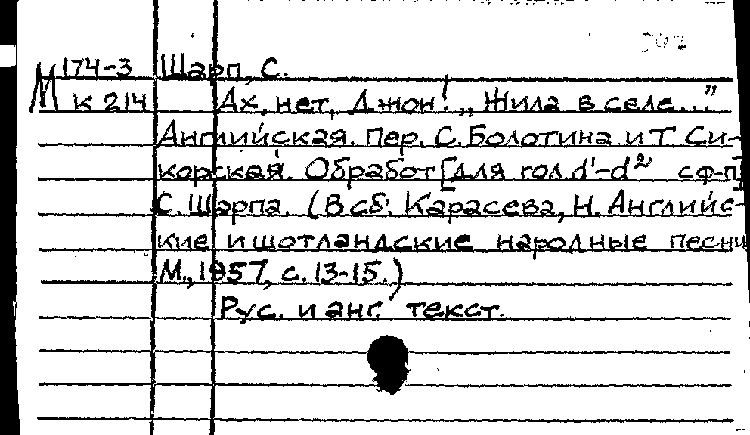 М 174-3 Шарп, С.
К 214 Ах, нет, Джон! „Жила в селе..."
Английская. Пер. С. Болотина и Т. Си-
корская. Обработ [для гол. d¹-d² с ф-п]
С. Шарпа. (В сб: Карасева, Н. Английс-
кие и шотландские народные песни
М., 1957, с. 13-15.)
Рус. и анг. текст.